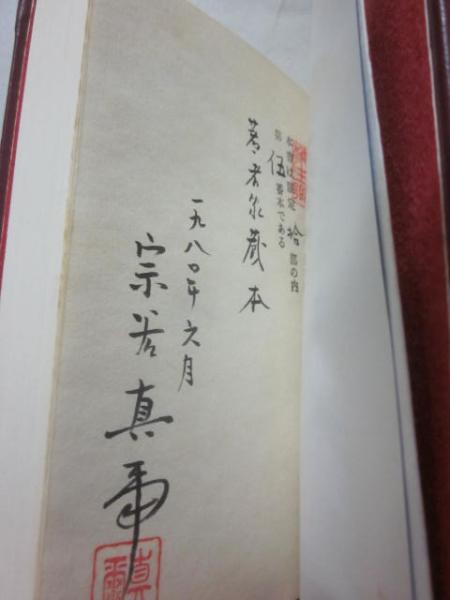 本書は限定 拾 部の内
第 伍 番本である
著者家蔵本
一九八〇年六月
宗谷真爾
真爾